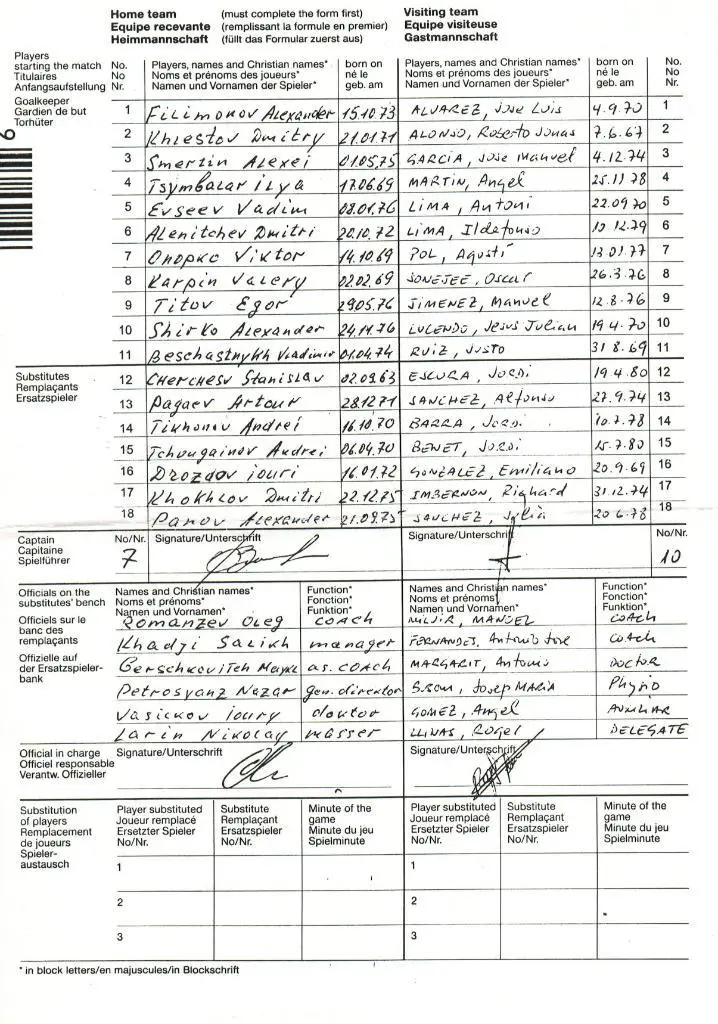 Home team (must complete the form first) Visiting team
Equipe recevante (remplissant la formule en premier) Equipe visiteuse
Heimmannschaft (füllt das Formular zuerst aus) Gastmannschaft
Players starting the match No. Players, names and Christian names* born on Players, names and Christian names* born on No.
Titulaires No Noms et prénoms des joueurs* né le Noms et prénoms des joueurs* né le No
Anfangsaufstellung Nr. Namen und Vornamen der Spieler* geb. am Namen und Vornamen der Spieler* geb. am Nr.
Goalkeeper
Gardien de but
Torhüter
6
1 Filimonov Alexander 15.10.73 ALVAREZ, Jose Luis 4.9.70 1
2 Khlestov Dmitry 21.01.71 ALONSO, Roberto Jonas 7.6.67 2
3 Smertin Alexei 01.05.75 GARCIA, Jose Manuel 4.12.74 3
4 Tsymbalar ilya 17.06.69 MARTIN, Angel 25.11.78 4
5 Evseev Vadim 08.01.76 LIMA, Antoni 22.09.70 5
6 Alenitchev Dmitri 20.10.72 LIMA, Ildefonso 10.12.79 6
7 Onopko Viktor 14.10.69 POL, Agustí 13.01.77 7
8 Karpin Valery 02.02.69 SONEJEE, Oscar 26.3.76 8
9 Titov Egor 29.05.76 JIMENEZ, Manuel 12.8.76 9
10 Shirko Alexander 24.11.76 LUCENDO, Jesus Julian 19.4.70 10
11 Beschastnykh Vladimir 01.04.74 RUIZ, Justo 31.8.69 11
Substitutes
Remplaçants
Ersatzspieler
12 Cherchesv Stanislav 02.09.63 ESCURA, Jordi 19.4.80 12
13 Pagaev Artour 28.12.71 SANCHEZ, Alfonso 27.9.74 13
14 Tikhonov Andrei 16.10.70 BARRA, Jordi 10.7.78 14
15 Tchougainov Andrei 06.04.70 BENET, Jordi 15.7.80 15
16 Drozdov iouri 16.01.72 GONZALEZ, Emiliano 20.9.69 16
17 Khokhlov Dmitri 22.12.75 IMBERNON, Righard 31.12.74 17
18 Panov Alexander 21.09.75 SANCHEZ, Julia 20.6.78 18
Captain No/Nr. Signature/Unterschrift Signature/Unterschrift No/Nr.
Capitaine
Spielführer 7 10
Officials on the substitutes' bench Names and Christian names* Function* Names and Christian names* Function*
Officiels sur le banc des remplaçants Noms et prénoms* Fonction* Noms et prénoms* Fonction*
Offizielle auf der Ersatzspielerbank Namen und Vornamen* Funktion* Namen und Vornamen* Funktion*
Romanzev Oleg COACH MANUEL COACH
Khadji Salikh manager FERNANDES, Antonio Jose COACH
Gerschkovitch as. COACH MARGARIT, Antonio DOCTOR
Petrosyanz Nazar gen. direktor Josep MARIA Physio
Vasickov ioury doktor GOMEZ, Angel AUXILIAR
Larin Nikolay masser LLINAS, Rogel DELEGATE
Official in charge Signature/Unterschrift Signature/Unterschrift
Officiel responsable
Verantw. Offizieller
Substitution of players Player substituted Substitute Minute of the game Player substituted Substitute Minute of the game
Remplacement de joueurs Joueur remplacé Remplaçant Minute du jeu Joueur remplacé Remplaçant Minute du jeu
Spieleraustausch Ersetzter Spieler Ersatzspieler Spielminute Ersetzter Spieler Ersatzspieler Spielminute
No/Nr. No/Nr. No/Nr. No/Nr.
1 1
2 2
3 3
* in block letters/en majuscules/in Blockschrift